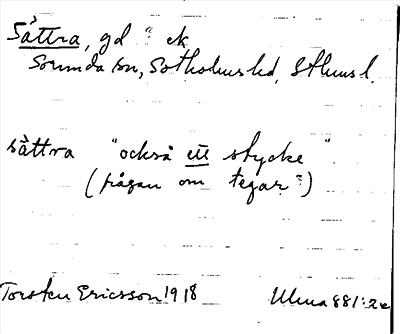 Såttra, gd i ek
Sorunda sn, Sotholms hd, Sthms l.
såttra "också ett stycke"
(frågan om tegar?)
Torsten Ericsson 1918 Ulma 881:2c